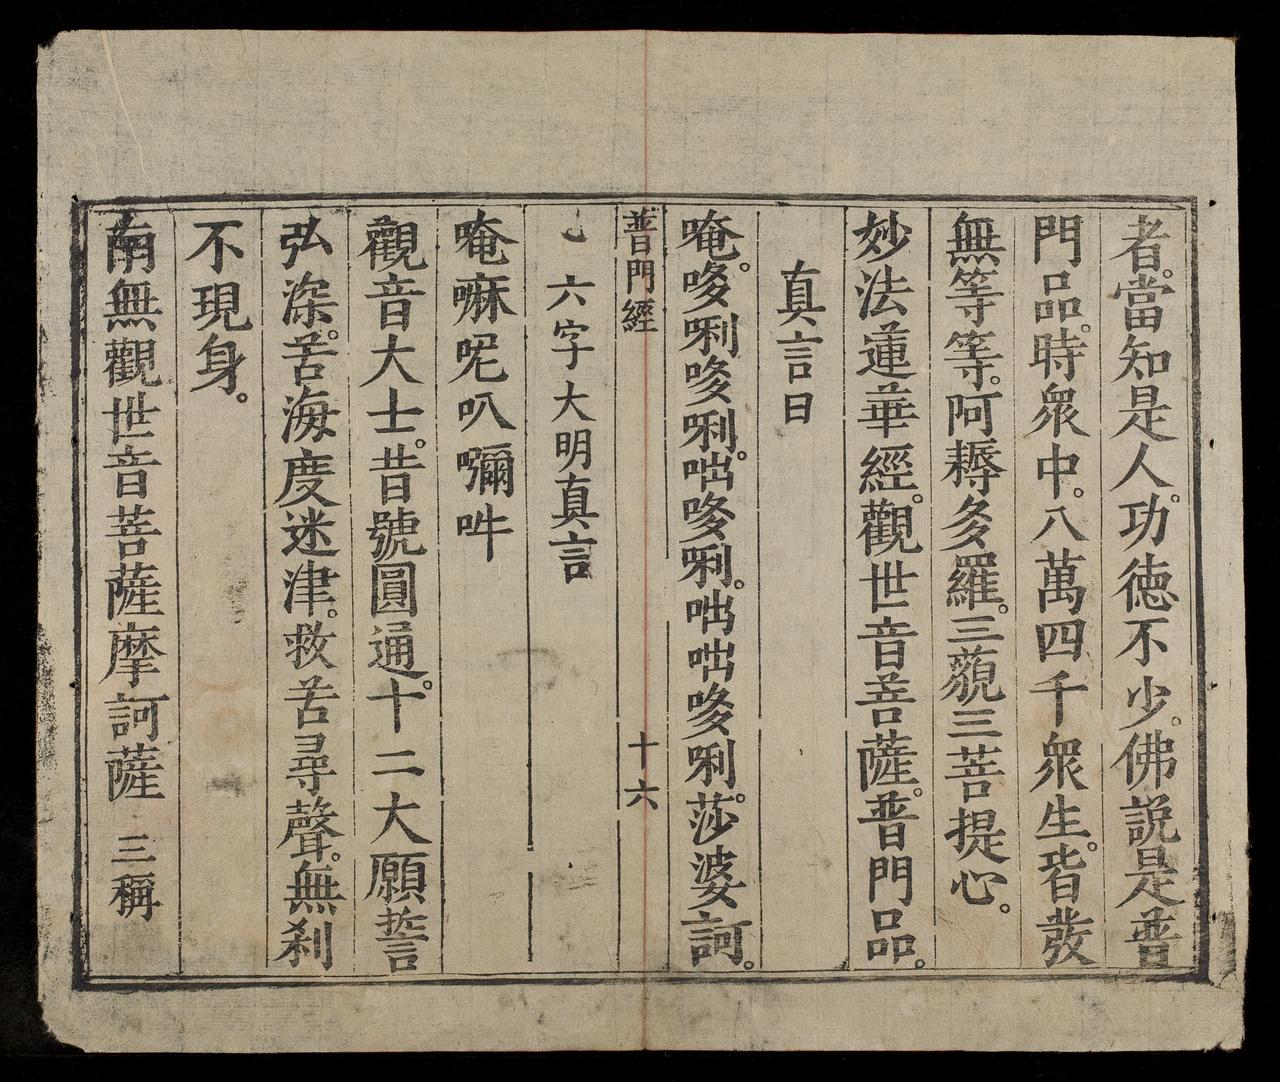 者。當知是人。功德不少。佛説是普
門品。時衆中。八萬四千衆生。皆發
無等等。阿耨多羅。三藐三菩提心。
妙法蓮華經。觀世音菩薩。普門品。
真言曰
唵。哆唎哆唎。咄哆唎。咄咄哆唎。莎婆訶。
普門經 十六
六字大明真言
唵嘛呢叭彌吽
觀音大士。昔號圓通。十二大願誓
弘深。苦海度迷津。救苦尋聲。無刹
不現身。
南無觀世音菩薩摩訶薩 三稱